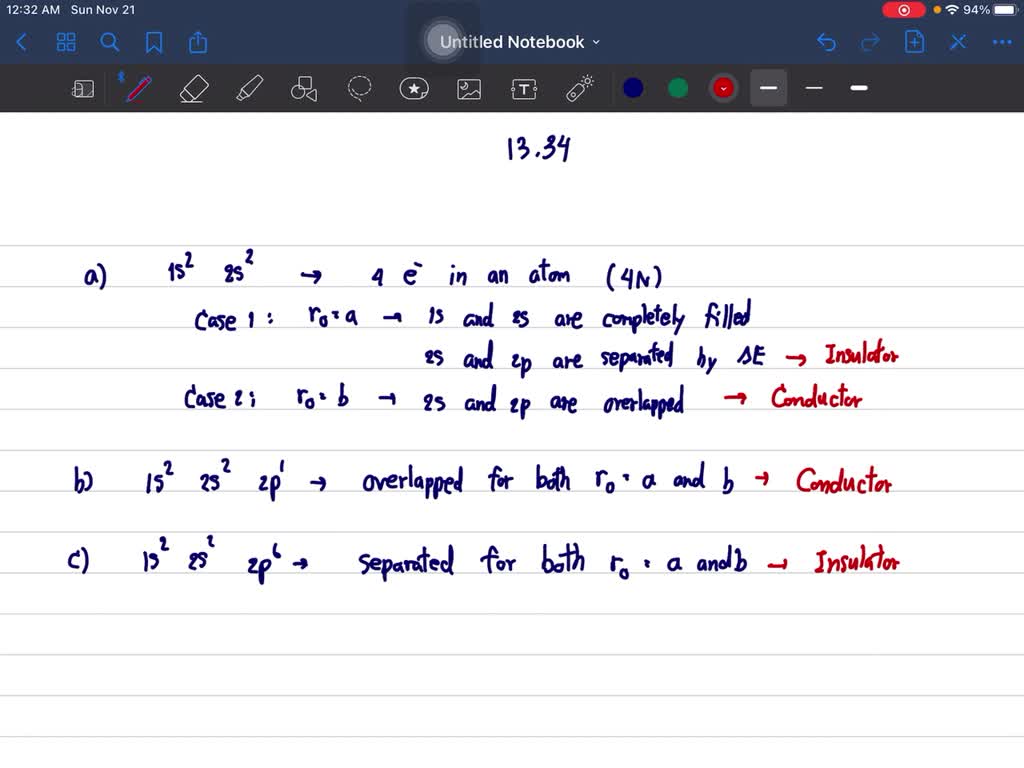 12:32 AM Sun Nov 21
94%
Untitled Notebook
13.34
a) 1s² 2s² → 4 e⁻ in an atom (4N)
Case 1: r₀ = a → 1s and 2s are completely filled
2s and 2p are separated by ΔE → Insulator
Case 2: r₀ = b → 2s and 2p are overlapped → Conductor
b) 1s² 2s² 2p¹ → overlapped for both r₀ = a and b → Conductor
c) 1s² 2s² 2p⁶ → separated for both r₀ = a and b → Insulator